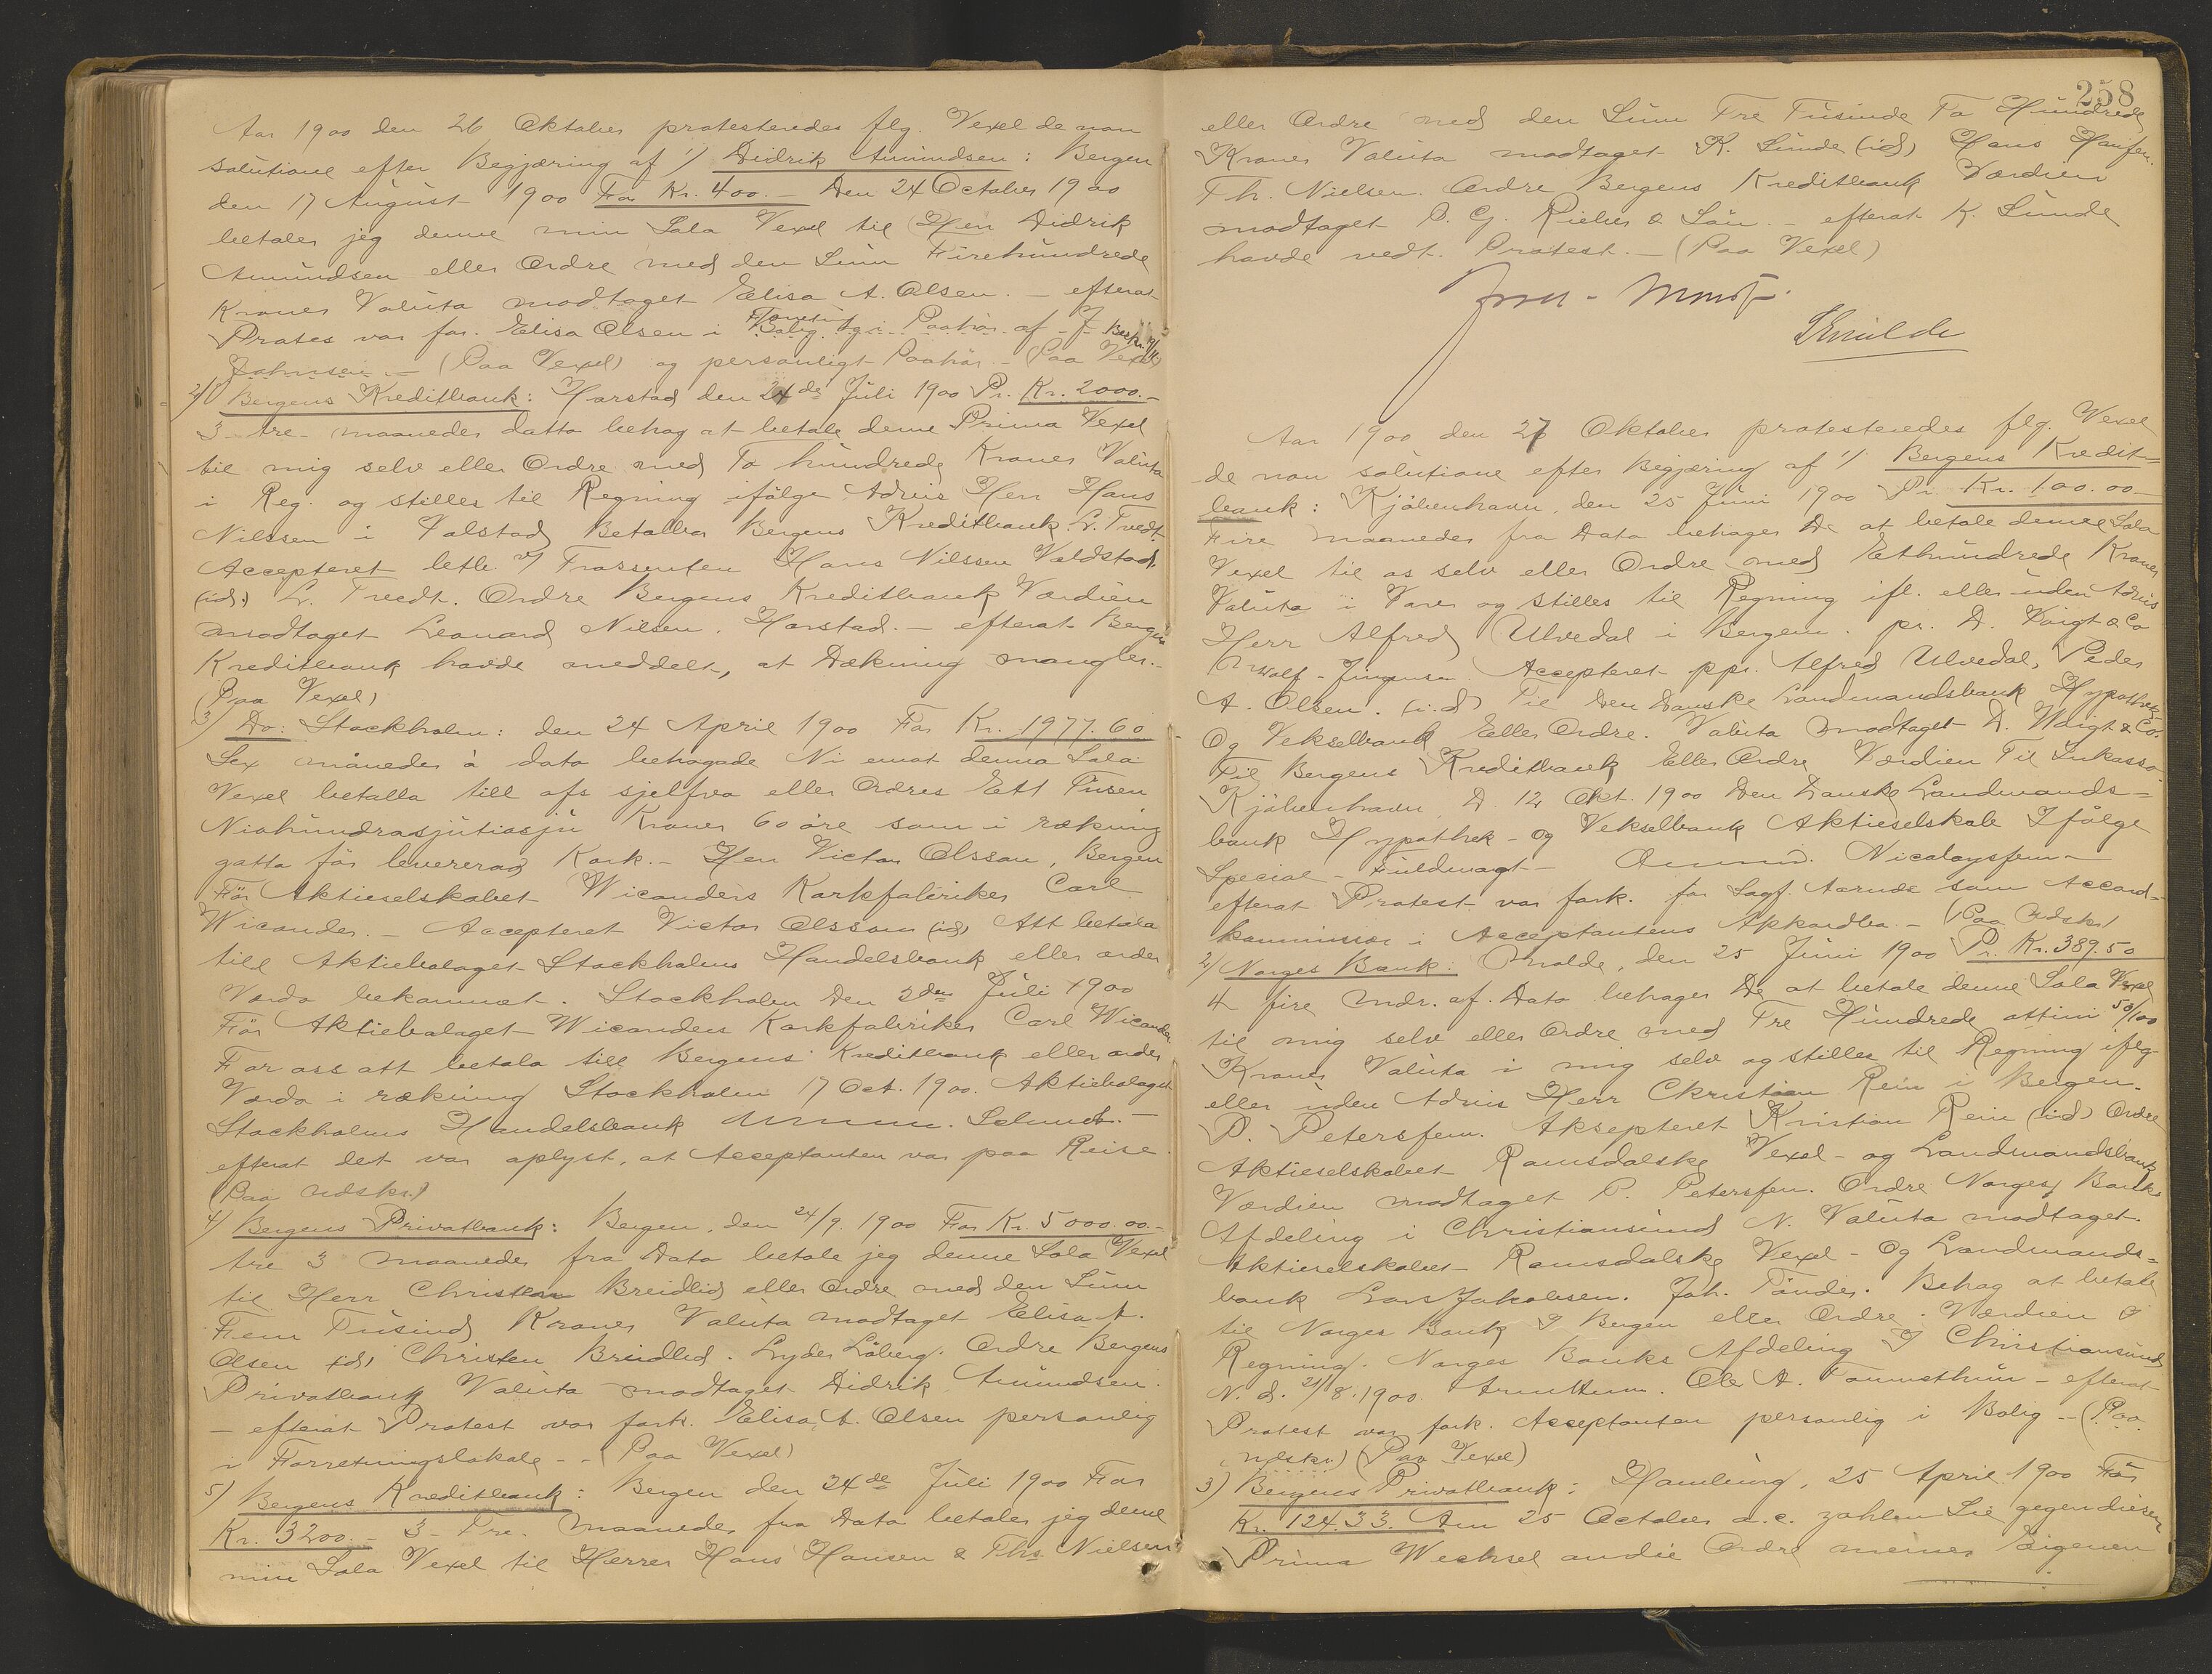 Aar 1900 den 26 Oktober protesteredes flg. Vexel de non
solutione efter Begjæring af 1) Didrik Amundsen: Bergen
den 17 August 1900 For Kr. 400.— Den 24 October 1900
betaler jeg denne min Sola Vexel til Herr Didrik
Amundsen eller Ordre med den Sum Firehundrede
Kroner Valuta modtaget Elisa A. Olsen. — efterat
Protes var for. Elisa Olsen i Bolig og i Paahør af J
Johnsen — (Paa Vexel) og personligt Paahør — (Paa Vexel)
2) Bergens Kreditbank: Harstad den 24de Juli 1900 Pr. Kr. 2000.—
3 tre maaneder datto behag at betale denne Prima Vexel
til mig selv eller Ordre med To hundrede Kroner Valuta
i Reg. og stilles til Regning ifølge Advis Herr Hans
Nilssen i Valstad Betalbar Bergens Kreditbank L. Tvedt
Accepteret betb. v/ Trassenten Hans Nilssen Valdstad
(id.) L. Tvedt. Ordre Bergens Kreditbank Værdien
modtaget Leonard Nilsen. Harstad. — efterat Bergens
Kreditbank havde meddelt, at Dækning mangler.—
(Paa Vexel)
3) Do: Stockholm: den 24 April 1900 For Kr. 1977.60
Sex månader à dato behagade Ni emot denna Sola
Vexel betalla till ofs sjelfva eller Ordres Ett Tusen
Niohundrasjutiosju Kroner 60 öre som i räkning
gatta för levererad Kork.— Herr Victor Olsson, Bergen
För Aktieselskabet Wicanders Korkfabriker Carl
Wicander.— Accepteret Victor Olsson (id) Att betala
till Aktiebolaget Stockholms Handelsbank eller order
Värdo bekommet. Stockholm Den 3den Juli 1900
För Aktiebolaget Wicanders Korkfabriker Carl Wicander
For oss att betala till Bergens Kreditbank eller order
Värdo i räkning Stockholm 17 Oct. 1900. Aktiebolaget
Stockholms Handelsbank
efterat det var oplyst, at Acceptanten var paa Reise.
(Paa Udskr.)
4) Bergens Privatbank: Bergen, den 24/9. 1900 For Kr. 5000.00.—
tre 3 maaneder fra Dato betale jeg denne Sola Vexel
til Herr Christen Breidlid eller Ordre med den Sum
Fem Tusind Kroner Valuta modtaget Elisa A.
Olsen (id) Christen Breidlid. Lyder Löberg. Ordre Bergens
Privatbank Valuta modtaget Didrik Amundsen.
— efterat Protest var fork. Elisa A. Olsen personlig
i Forretningslokale — (Paa Vexel)
5) Bergens Kreditbank: Bergen den 24de Juli 1900 For
Kr. 3200.— 3 Tre. Maaneder fra Dato betaler jeg denne
min Sola Vexel til Herrer Hans Hansen & Ths Nielsen
258
eller Ordre med den Sum Tre Tusinde To Hundrede
Kroner Valuta modtaget K. Sunde (id) Hans Hansen.
Th. Nielsen. Ordre Bergens Kreditbank Værdien
modtaget P. G. Rieber & Søn. — efterat K. Sunde
havde vedt. Protest. — (Paa Vexel)
Aar 1900 den 27 Oktober protesteredes flg. Vexel
de non solutione efter Begjæring af 1) Bergens Kredit=
bank: Kjöbenhavn, den 25 Juni 1900 Pr. Kr. 100.00—
Fire maaneder fra Dato behager De at betale denne Sola
Vexel til os selv eller Ordre med Ethundrede Kroner
Valuta i Varer og stilles til Regning ifl. eller uden Advis
Herr Alfred Ulvedal i Bergen. pr. D. Voigt & Co
Accepteret ppr. Alfred Ulvedal, Peder
A. Olsen. (i.d) Til Den Danske Landmandsbank Hypothek
Og Vekselbank Eller Ordre. Valuta modtaget D. Woigt & Co.
Til Bergens Kreditbank Eller Ordre Værdien Til Inkasso
Kjöbenhavn, D. 12 Okt. 1900 Den Danske Landmands=
bank Hypothek- og Vekselbank Aktieselskab Ifölge
Special-Fuldmagt Nicolaysen —
efterat Protest var fork. for Sagf. Aarnæs som Accord=
kommissær i Acceptantens Apkordbo — (Paa Udskr)
2) Norges Bank: Molde, den 25 Juni 1900 Pr. Kr. 389.50
4 fire Mdr. af Dato behager De at betale denne Sola Vexel
til mig selv eller Ordre med Tre Hundrede ottini 50/100
Kroner Valuta i mig selv og stilles til Regning iflg
eller uden Advis Herr Christian Rein i Bergen.
P. Petersen. Aksepteret Kristian Rein (id) Ordre
Aktieselskabet Romsdalske Vexel- og Landmandsbank
Værdien modtaget P. Petersen. Ordre Norges Banks
Afdeling i Christiansund N. Valuta modtaget.
Aktieselskabet Romsdalske Vexel- Og Landmands=
bank Lars Jakobsen. Joh. Tønder. Behag at betale
til Norges Bank I Bergen eller Ordre. Værdien I
Regning. Norges Banks Afdeling I Christiansund
N. d. 21/8.1900. Ole A. — efterat
Protest var fork. Acceptanten personlig i Bolig — (Paa
Udskr.) (Paa Vexel)
3) Bergens Privatbank: Hamburg, 25 April 1900 För
Kr. 124.33. Am 25 October a.c. zahlen Sie gegen diesen
Prima Wechsel an die Ordre meiner Eigenen